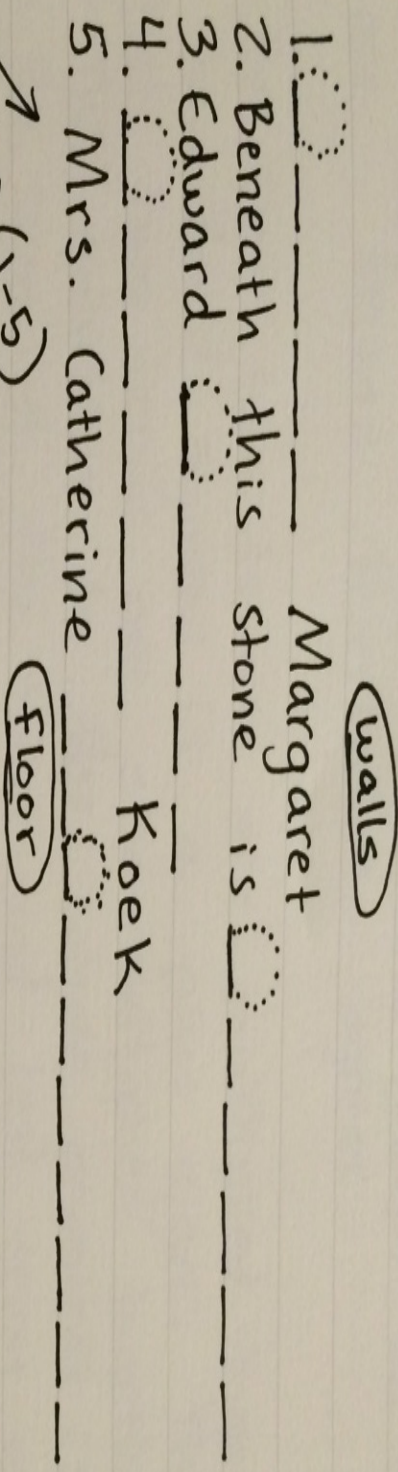 walls
1. _ _ _ _ _ Margaret
2. Beneath this stone is _ _ _ _ _ _
3. Edward _ _ _ _ _
4. _ _ _ _ _ _ Koek
5. Mrs. Catherine _ _ _ _ _ _ _ _ _
floor